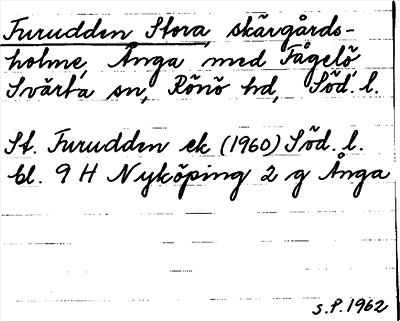 Furudden Stora, skärgårds-
holme, Ånga med Fågelö
Svärta sn, Rönö hd, Söd. l.
St. Furudden ek (1960) Söd. l.
bl. 9 H Nyköping 2 g Ånga
S.P. 1962